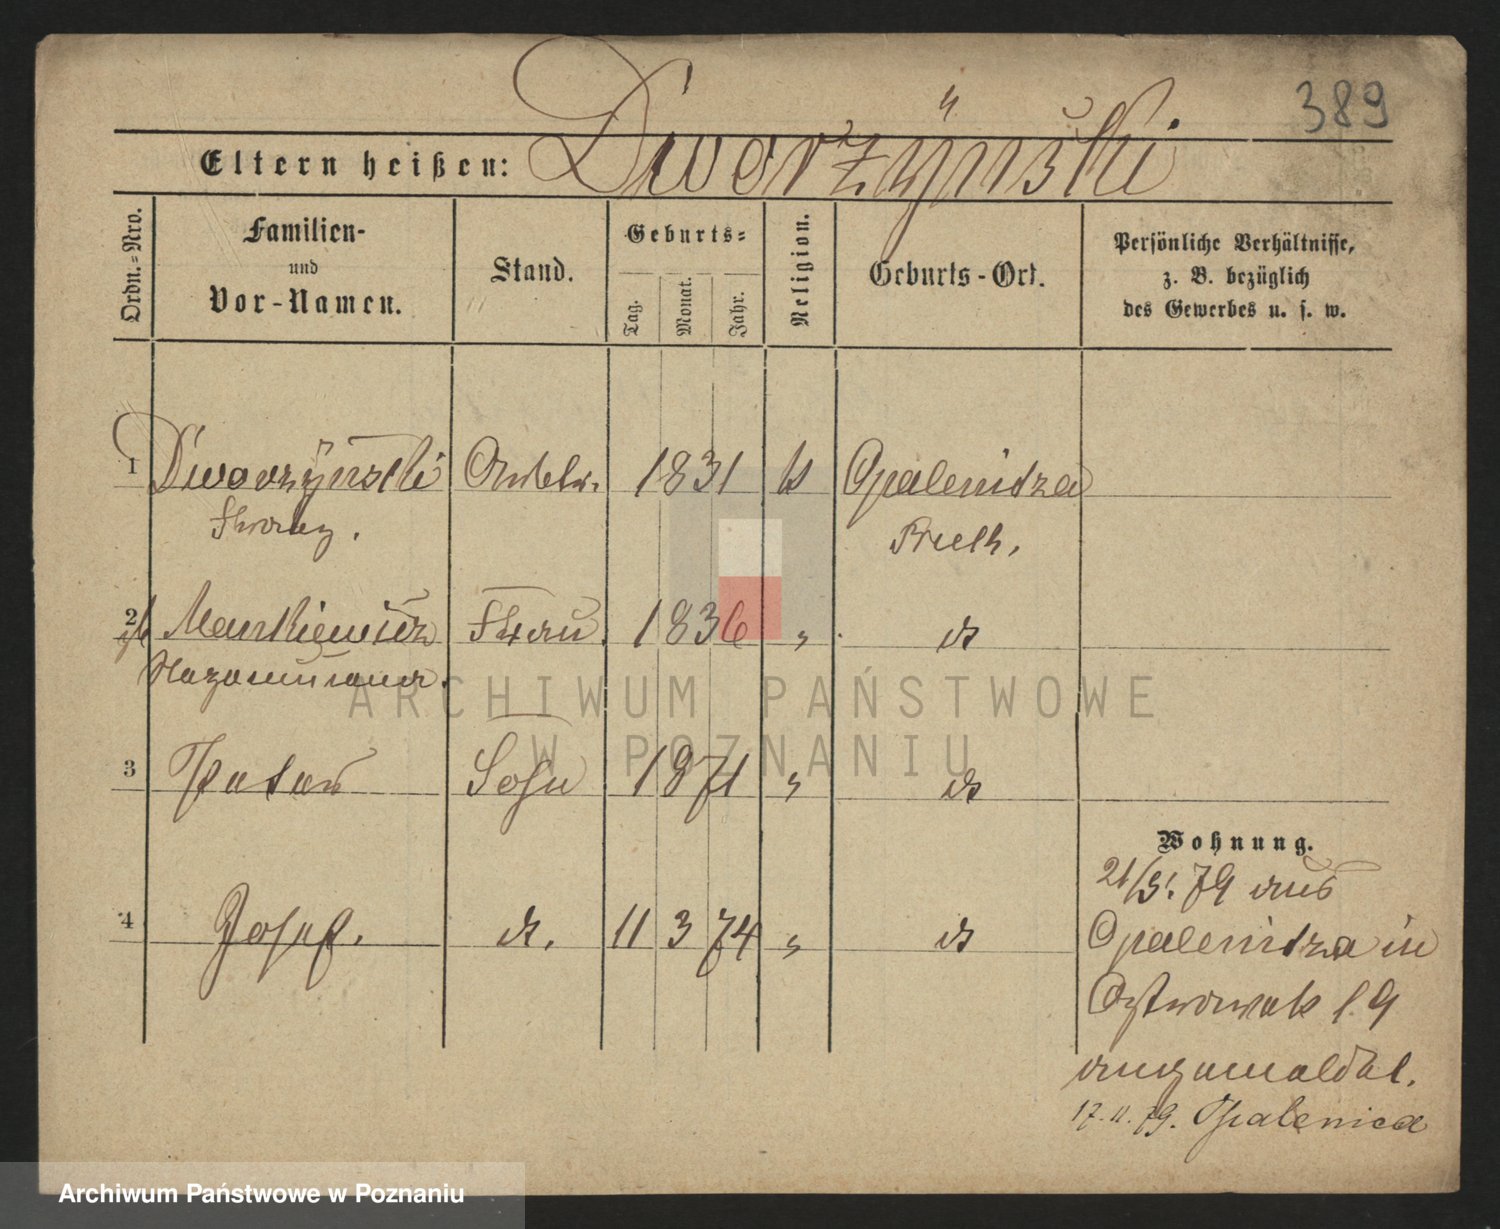 389
Eltern heißen: Dworzÿński
Ordn.-Nro.
Familien-
und
Vor-Namen.
Stand.
Geburts-
Tag.
Monat.
Jahr.
Religion.
Geburts-Ort.
Persönliche Verhältnisse,
z. B. bezüglich
des Gewerbes u. s. w.
1 Dworzÿnski 1831 k Opalenitza
Franz.
2 Mankiewicz Frau 1836 " do
3 Sohn 1871 " do
4 Josef. do. 11 3 74 " do
Wohnung.
21/3. 79 aus
Opalenitza in
Ostrowek 1. 9
angemeldet.
17. 11. 79. Opalenica
ARCHIWUM PAŃSTWOWE
W POZNANIU
Archiwum Państwowe w Poznaniu